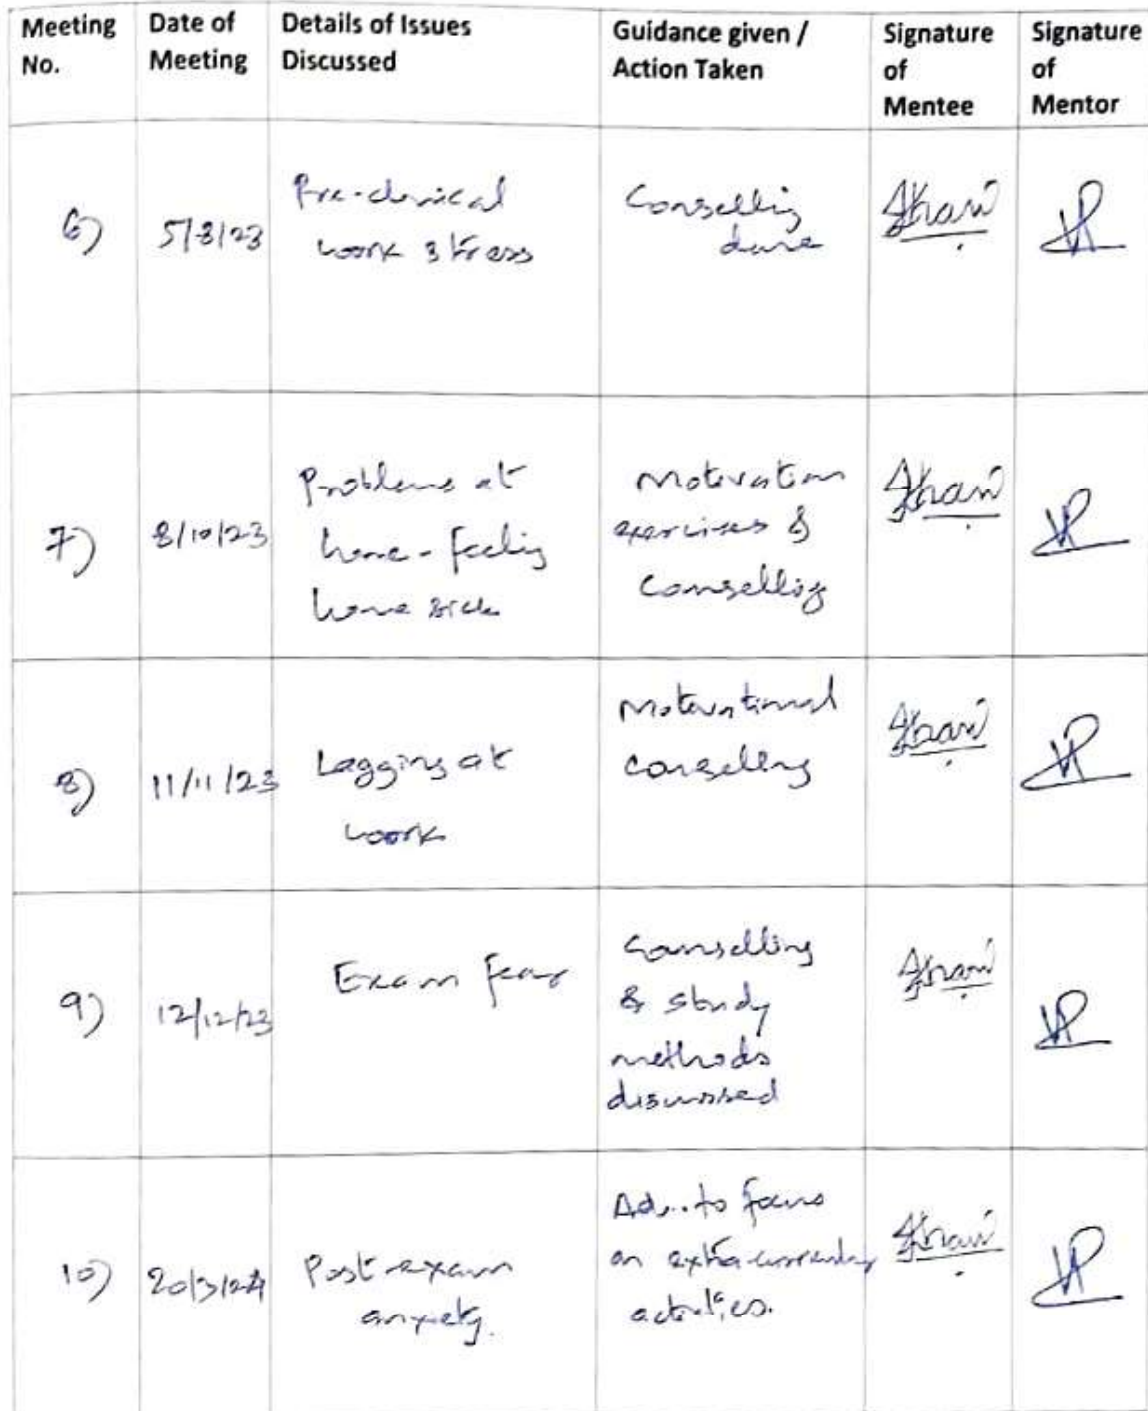 Meeting No.
Date of Meeting
Details of Issues Discussed
Guidance given / Action Taken
Signature of Mentee
Signature of Mentor
6)
5/8/23
Pre-clinical
work stress
Conselling
done
7)
8/10/23
Problems at
home - feeling
home sick
Motivation
exercises &
Conselling
8)
11/11/23
Lagging at
work
Motivational
conselling
9)
12/12/23
Exam fear
Counselling
& study
methods
discussed
10)
20/3/24
Post-exam
anxiety.
Adv. to focus
on extra-curricular
activities.